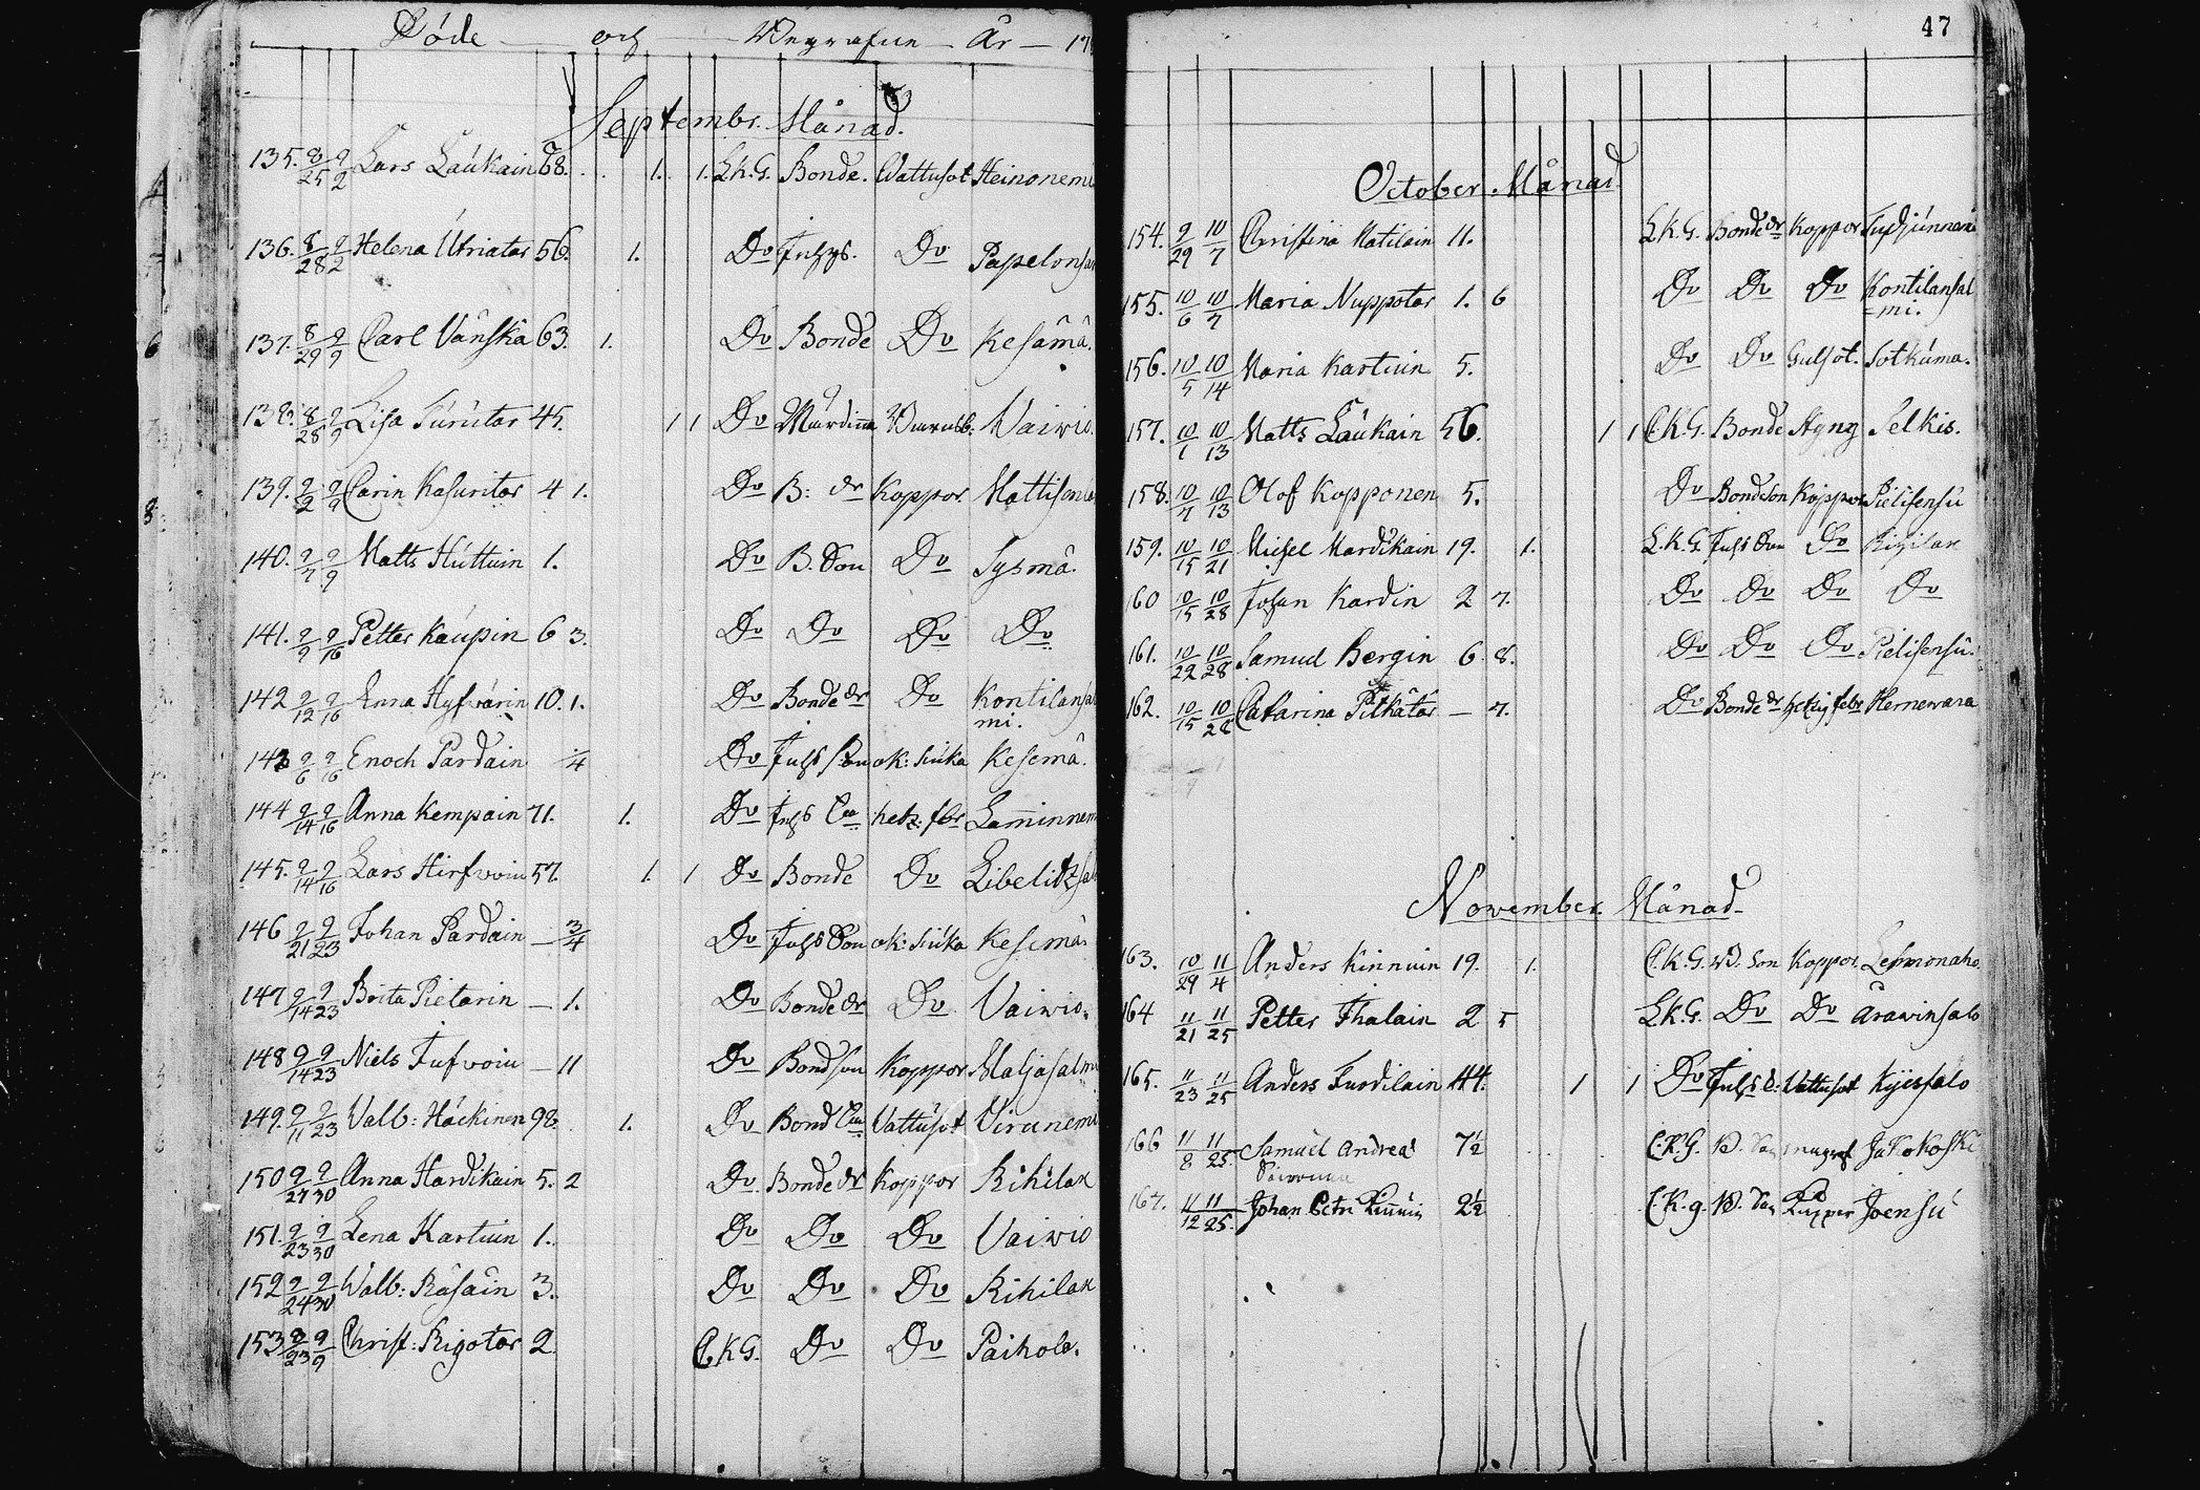 Döde och Begrafne År 17
Septembr. Månad.
135. 8/25 9/2 Lars Laukain 68. 1. 1. L.k.G. Bonde. Wattusot Heinonemi
136. 8/28 9/2 Helena Utriatar 56. 1. Do Do Papelonsa
137. 8/29 9/9 Carl Vänskä 63. 1. Do Bonde Do Kesämä.
138. 8/28 9/9 Lisa 45. 1 1 Do Waiwio.
139. 9/2 9/9 Carin Kasuritar 4 1. Do B: dr Koppor. Mattisen
140. 9/7 9/9 Matts Huttuin 1. Do B. Son Do Sysmä.
141. 9/9 9/16 Petter Kaupin 6 3. Do Do Do Do
142 9/12 9/16 Anna Hyfvärin 10. 1. Do Bonde dr Do Kontilansal
mi.
143 9/6 9/16 Enoch Pardain 4 Do Juhs Son Kesemä.
144 9/14 9/16 Anna Kempain 71. 1. Do hetz. fbr Laminnem
145. 9/14 9/16 Lars Hirfvoin 57. 1. 1 Do Bonde Do Libelitzsal
146 9/21 9/23 Johan Pardain — 3/4 Do Juhs Son Kesemä
147 9/14 9/23 Brita Pietarin — 1. Do Bonde dr Do Vaiwio.
148 9/14 9/23 Niels Jufvoin — 11 Do Bondson Koppor Maljasalmi
149. 9/11 9/23 Valb: Häckinen 98. 1. Do Bond Vattusot Virunemi
150 9/27 9/30 Anna Hardikain 5. 2 Do Bonde dr Koppor Rihilax
151. 9/23 9/30 Lena Kartuin 1. Do Do Do Vaiwio
152 9/24 9/30 Walb: Räsäin 3. Do Do Do Rihilax
153 9/23 9/9 Christ: Rigotar 2. C.K.G. Do Do Paihola.
47
October Månad
154. 9/29 10/7 Christina Matilain 11. L.K.G. Bonde dr Koppor
155. 10/6 10/7 Maria Nuppotar 1. 6 Do Do Do Kontilansal
=mi.
156. 10/5 10/14 Maria Kartiuin 5. Do Do Gulsot. Sotkuma.
157. 10/1 10/13 Matts Laukain 56. 1 1 C.K.G. Bonde Hgng Selkis.
158. 10/7 10/13 Olof Kopponen 5. Do Bondeson Koppor Pielisensu
159. 10/15 10/21 Michel Mardikain 19. 1. L.K.G. Juhs Son Do Rihilax
160 10/15 10/28 Johan Kardin 2 7. Do Do Do Do
161. 10/22 10/28 Samuel Bergin 6. 8. Do Do Do Pielisensu.
162. 10/15 10/28 Catarina Pitkätar — 7. Do Bonde dr hetzig feber Hernewara
November Månad
163. 10/29 11/4 Anders Kinnuin 19. 1. C.K.G. B. Son Koppor.
164 11/21 11/25 Petter Ihalain 2 5 L.K.G. Do Do Arawinsalo
165. 11/23 11/25 Anders Turdilain 44. 1 1 Do Juhs d. Vattusot Kyiessalo
166 11/8 11/25. Samuel Andreas 7½ C.K.G. B. Son Jakokoski
167. 11/12 11/25. Johan Petri Kinnuin 2½ C.K.g. B. Son Kopper Joensu